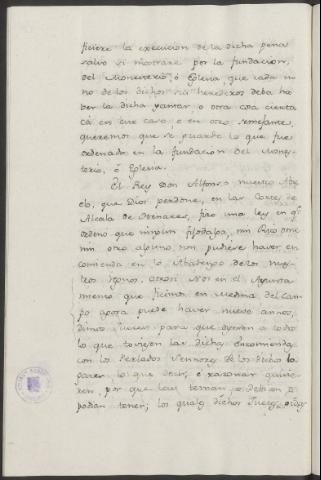 ficiere la execucion de la dicha pena
salvo si mostrare por la fundacion
del Monesterio, ó Eglesia, que cada u-
no de los dichos herederos deba ha
ber la dicha yantar o otra cosa cierta
cá en ese caso o en otro semejante,
queremos que se guarde lo que fue
ordenado en la fundacion del Mones-
terio, ó Eglesia.
El Rey Don Alfonso nuestro Abue
lo, que Dios perdone, en las Cortes de
Alcala de Henares, fizo una ley en q.e
ordeno que ningun fijodalgo, nin Rico ome
nin otro alguno non pudiese haver en
comienda en lo Abadengo de los nues
tros Regnos, otrosi Nos en el Ayunta
miento que ficimos en Medina del Cam
po agora puede haver nueve annos,
dimos Jueces para que oyesen a todos
los que toviesen las dichas Encomiendas
con los Perlados Sennores de los dichos lo
gares lo que decir, é razonar quisie-
ren, por que las tenian, e debian o
podian tener; los quales dichos Jueces, oidas